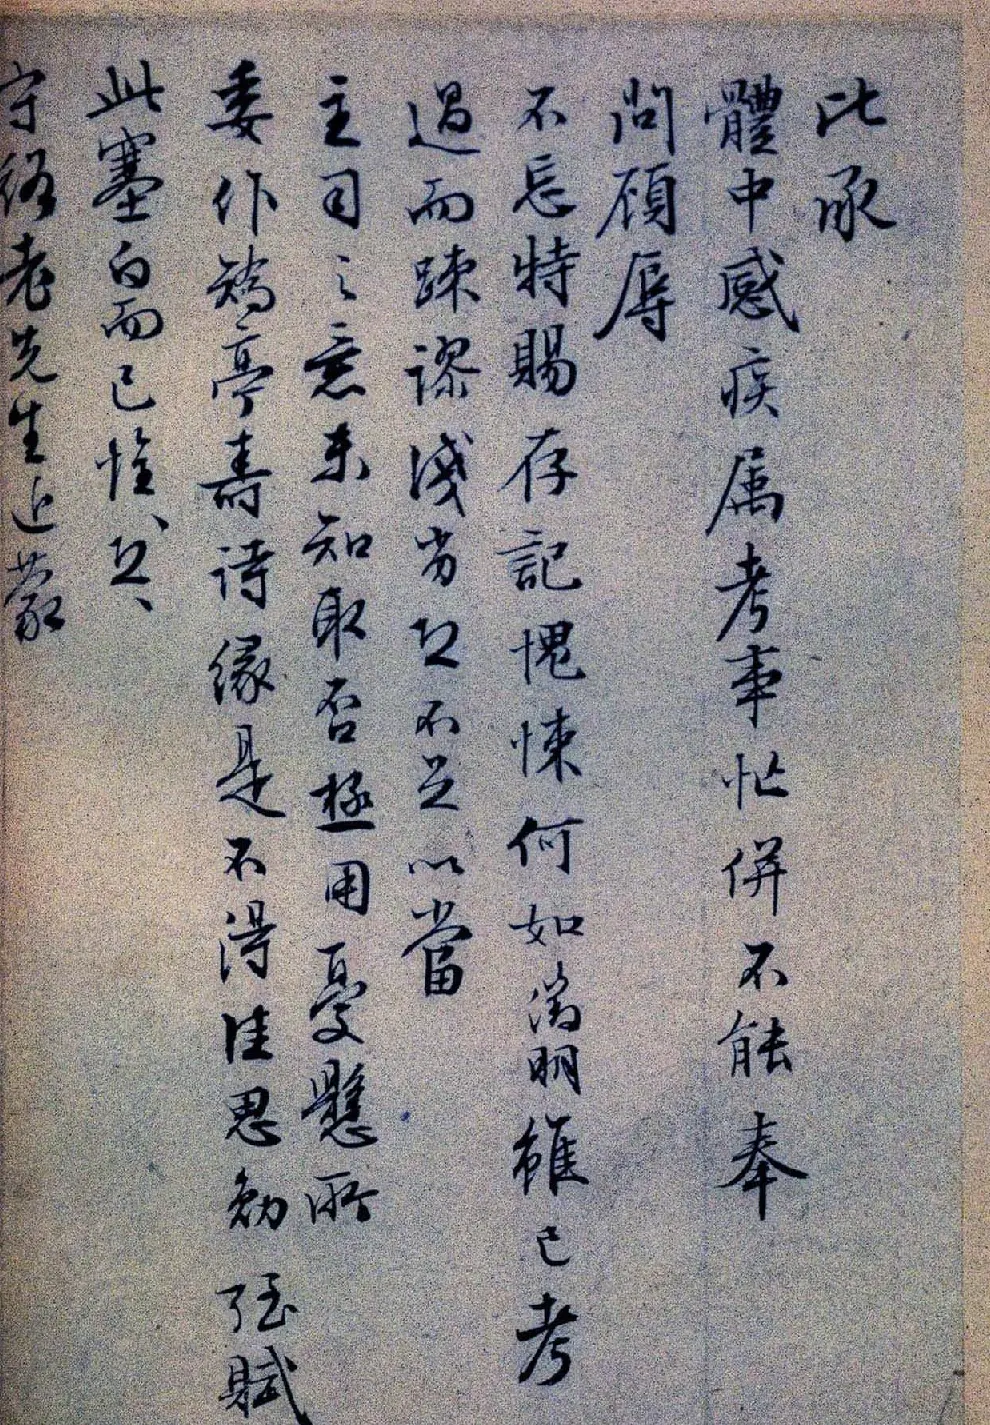 比承
體中感疾属考事忙併不能奉
問顧辱
不忘特賜存記愧悚何如 明雖已考
過而疎謬淺劣恐不足以當
主司之意未知取否極用憂懸所
委作 亭壽詩緣是不得佳思勉强賦
此塞白而已恠恠恐恐
守 老先生 蒙